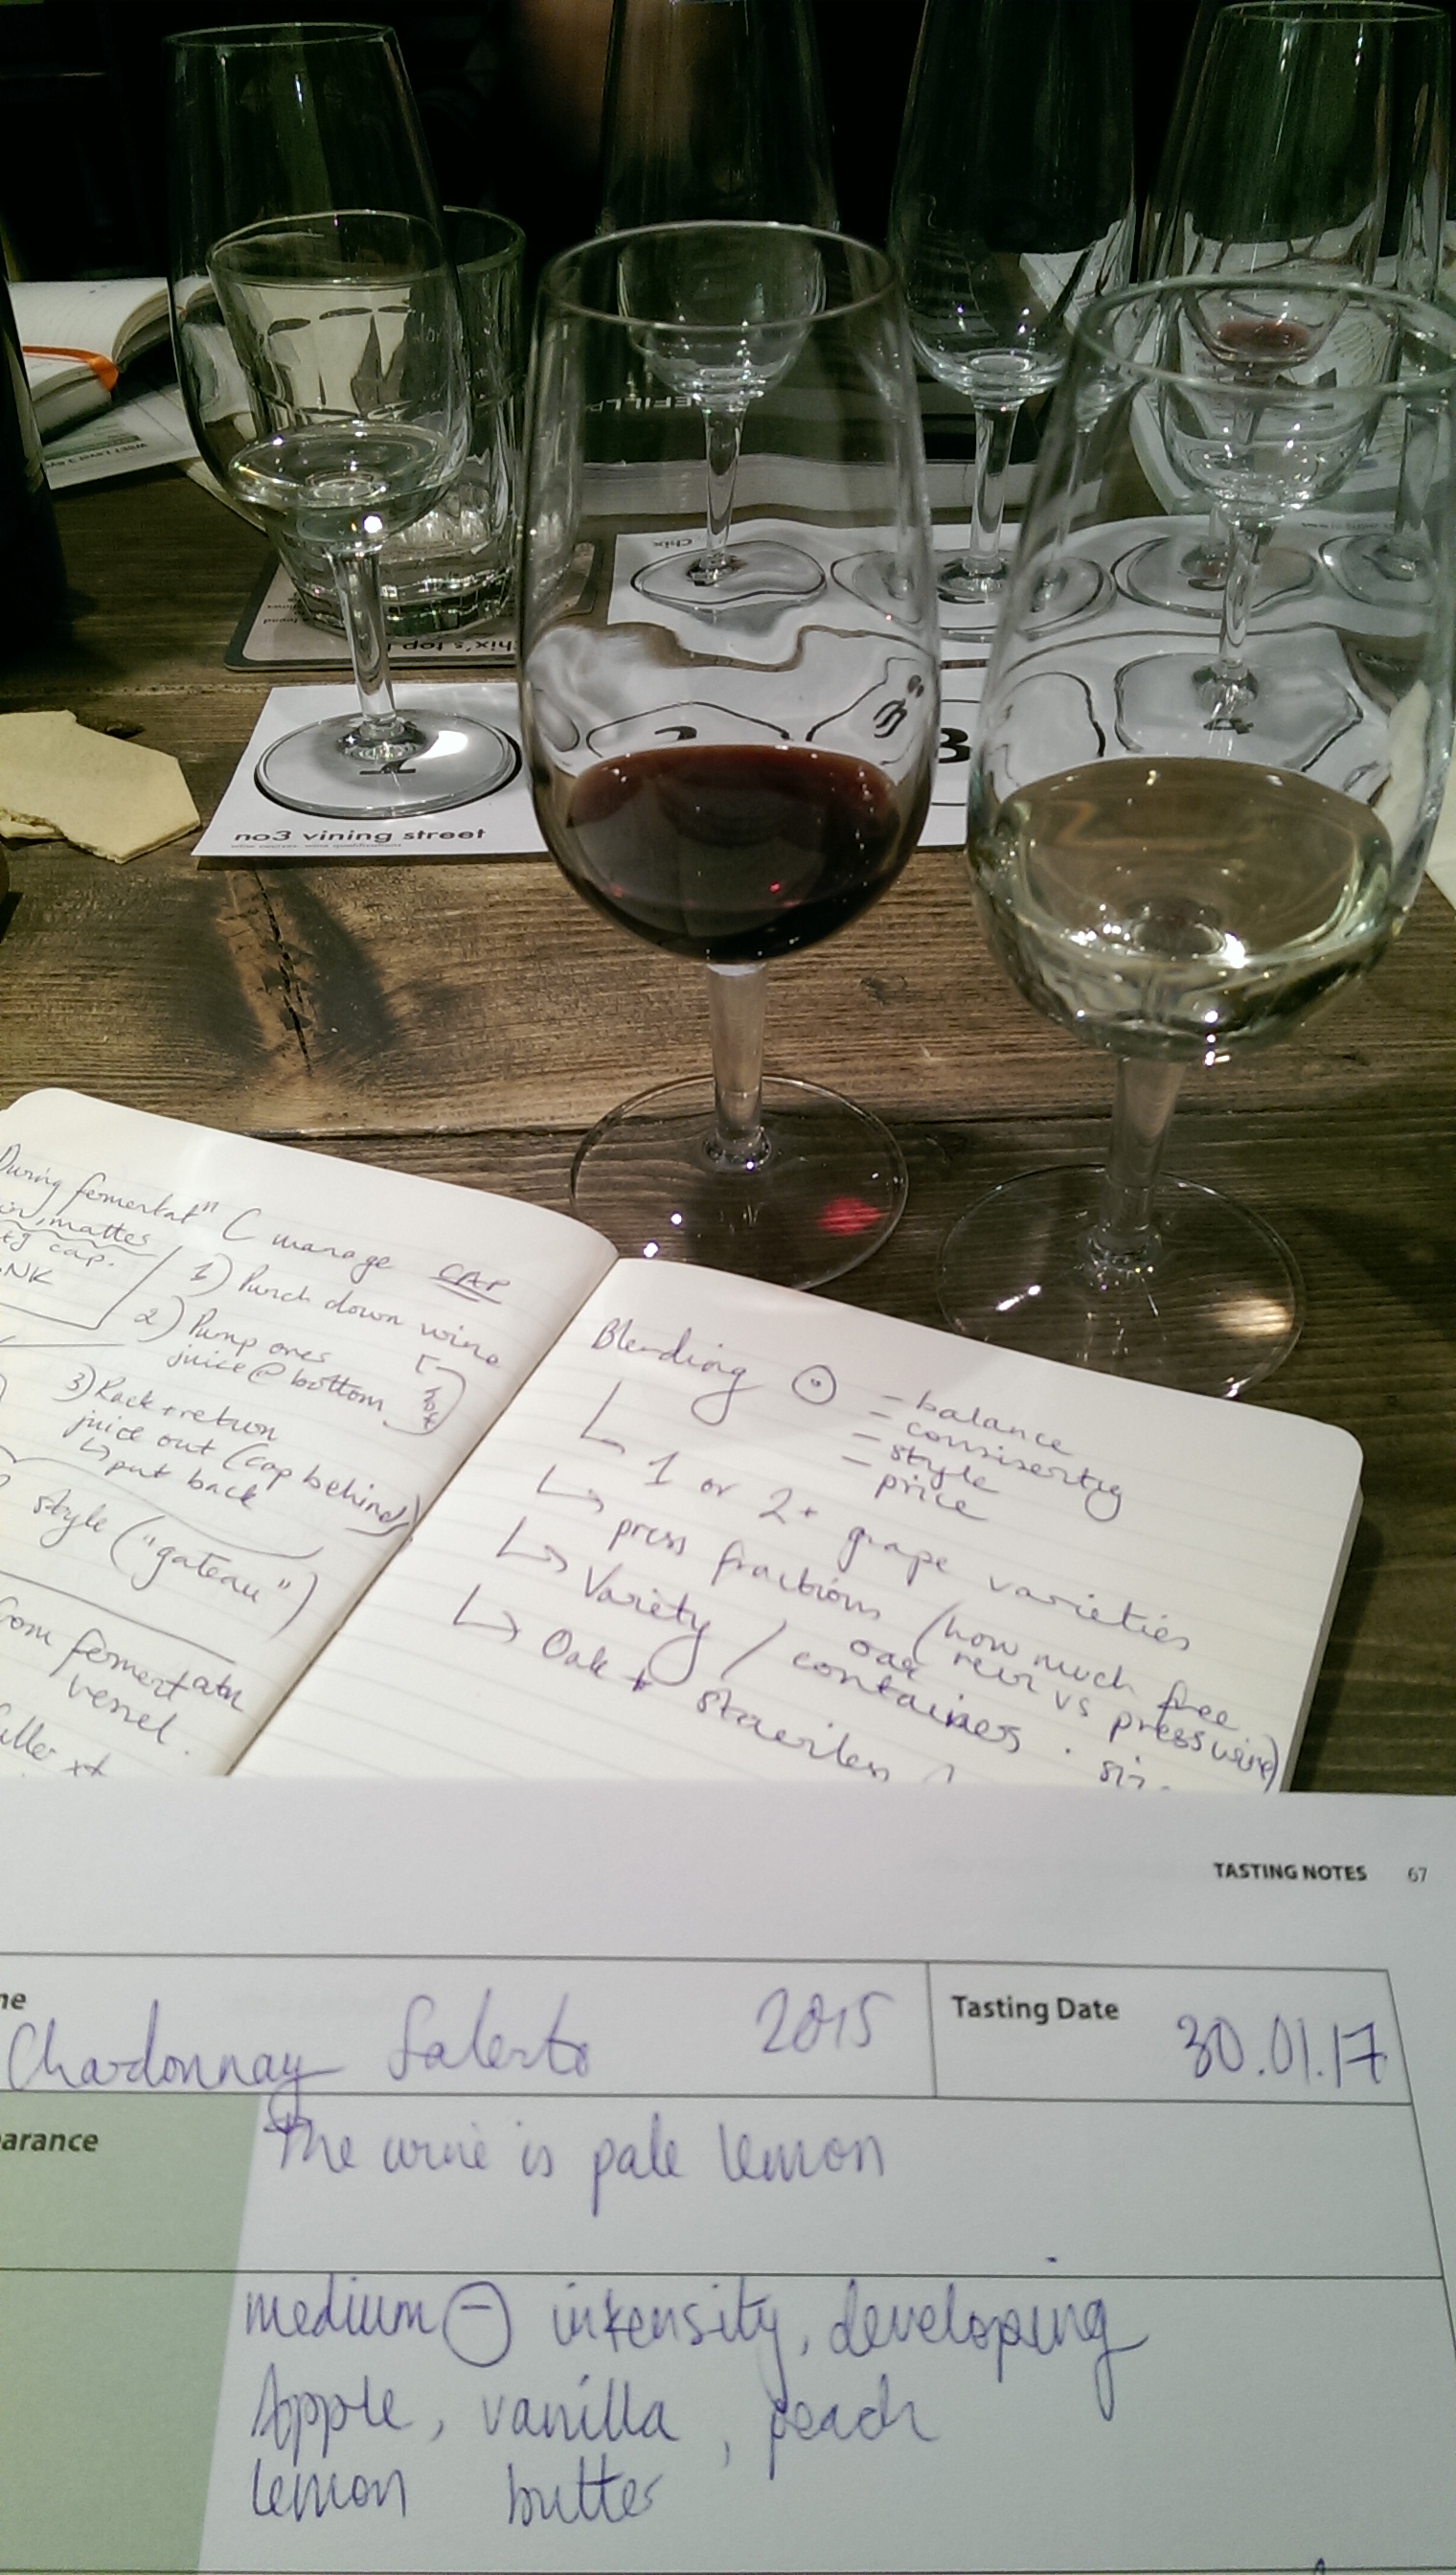 EFILL
WSET Level 3
Chix
hix's top
found
1
2
3
4
no3 vining street
wine courses. wine qualifications
During fermentatⁿ C manage CAP
mattes
cap.
NK
1) Punch down wine
2) Pump ones
juice @ bottom
3) Rack + return
juice out (cap behind)
↳ put back
style ("gateau")
from fermentatn
vessel.
Blending
- balance
- consisertcy
- style
- price
↳ 1 or 2+ grape varieties
↳ press fractions (how much free
vs press wine)
↳ Variety / containers
oak
↳ Oak + stainless
TASTING NOTES 67
Chardonnay Salento 2015
Tasting Date 30.01.17
arance
The wine is pale lemon
medium ⊖ intensity, developing
Apple, vanilla, peach
lemon butter